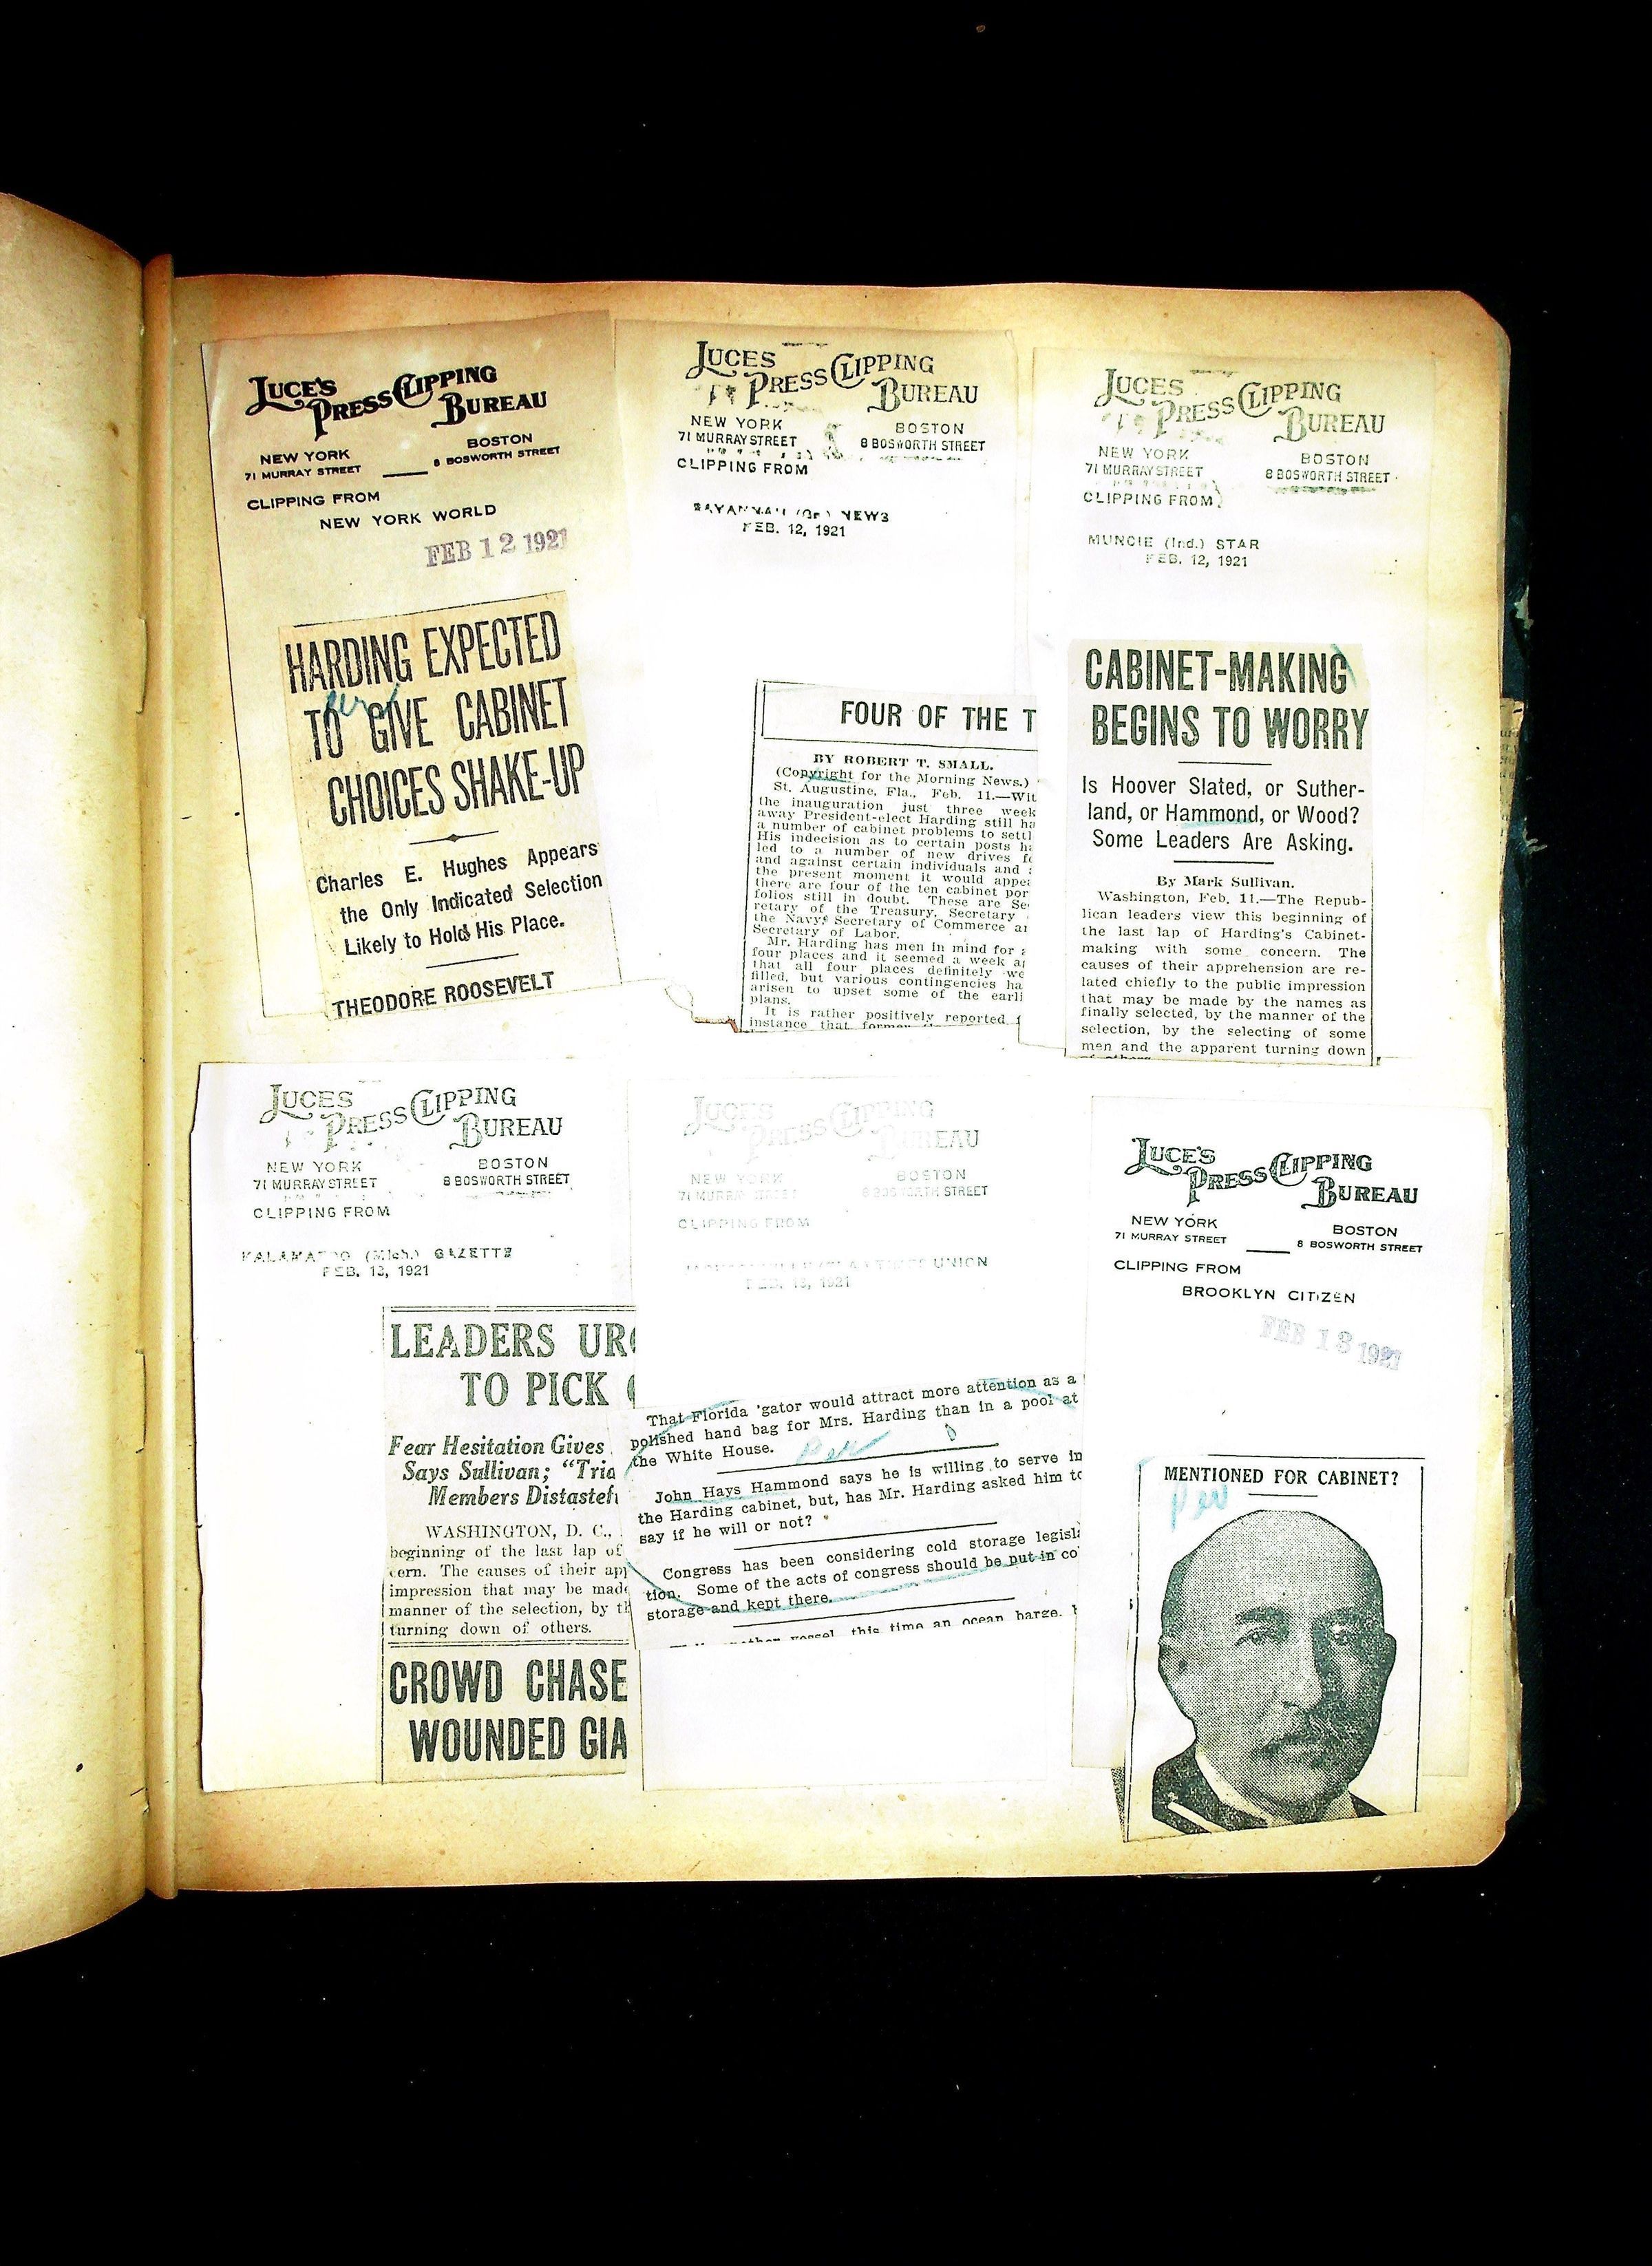 LUCE'S
PRESS CLIPPING
BUREAU
NEW YORK
71 MURRAY STREET
BOSTON
8 BOSWORTH STREET
CLIPPING FROM
NEW YORK WORLD
FEB 12 1921
HARDING EXPECTED
TO GIVE CABINET
CHOICES SHAKE-UP
Charles E. Hughes Appears
the Only Indicated Selection
Likely to Hold His Place.
THEODORE ROOSEVELT
LUCES
PRESS CLIPPING
BUREAU
NEW YORK
71 MURRAY STREET
BOSTON
8 BOSWORTH STREET
CLIPPING FROM
NEWS
FEB. 12, 1921
FOUR OF THE T
BY ROBERT T. SMALL.
(Copyright for the Morning News.)
St. Augustine, Fla., Feb. 11.—Wit
the inauguration just three week
away President-elect Harding still ha
a number of cabinet problems to settl
His indecision as to certain posts ha
led to a number of new drives fo
and against certain individuals and
the present moment it would appea
there are four of the ten cabinet por
folios still in doubt. These are Se
retary of the Treasury, Secretary
the Navy, Secretary of Commerce an
Secretary of Labor.
Mr. Harding has men in mind for
four places and it seemed a week a
that all four places definitely we
filled, but various contingencies ha
arisen to upset some of the earli
plans.
It is rather positively reported f
instance that former
LUCES
PRESS CLIPPING
BUREAU
NEW YORK
71 MURRAY STREET
BOSTON
8 BOSWORTH STREET
CLIPPING FROM
MUNCIE (Ind.) STAR
FEB. 12, 1921
CABINET-MAKING
BEGINS TO WORRY
Is Hoover Slated, or Suther-
land, or Hammond, or Wood?
Some Leaders Are Asking.
By Mark Sullivan.
Washington, Feb. 11.—The Repub-
lican leaders view this beginning of
the last lap of Harding's Cabinet-
making with some concern. The
causes of their apprehension are re-
lated chiefly to the public impression
that may be made by the names as
finally selected, by the manner of the
selection, by the selecting of some
men and the apparent turning down
of others
LUCES
PRESS CLIPPING
BUREAU
NEW YORK
71 MURRAY STREET
BOSTON
8 BOSWORTH STREET
CLIPPING FROM
(Mich.) GAZETTE
FEB. 13, 1921
LEADERS URG
TO PICK
Fear Hesitation Gives
Says Sullivan; "Tria
Members Distastef
WASHINGTON, D. C.,
beginning of the last lap of
cern. The causes of their app
impression that may be made
manner of the selection, by th
turning down of others.
CROWD CHASE
WOUNDED GIA
LUCES
PRESS CLIPPING
BUREAU
NEW YORK
71 MURRAY STREET
BOSTON
STREET
CLIPPING FROM
UNION
1921
That Florida 'gator would attract more attention as a
polished hand bag for Mrs. Harding than in a pool at
the White House.
John Hays Hammond says he is willing to serve in
the Harding cabinet, but, has Mr. Harding asked him to
say if he will or not?
Congress has been considering cold storage legisla
tion. Some of the acts of congress should be put in co
storage and kept there.
vessel, this time an ocean barge.
LUCE'S
PRESS CLIPPING
BUREAU
NEW YORK
71 MURRAY STREET
BOSTON
8 BOSWORTH STREET
CLIPPING FROM
BROOKLYN CITIZEN
FEB 13 1921
MENTIONED FOR CABINET?